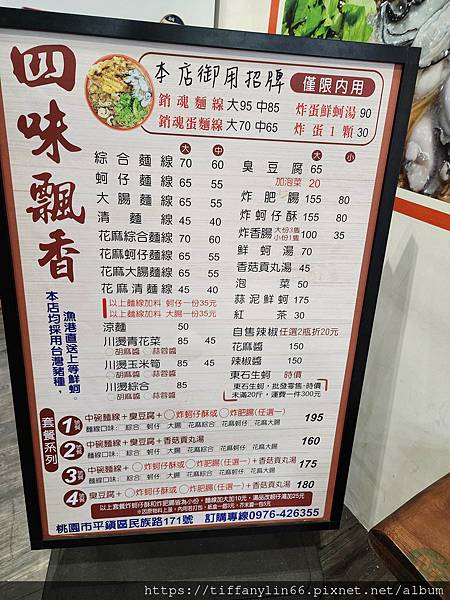 四味飄香
漁港直送上等鮮蚵。
本店均採用台灣豬種，
本店御用招牌
僅限內用
銷魂麵線大95中85
銷魂蛋麵線大70中65
炸蛋鮮蚵湯90
炸蛋1顆30
大 中
綜合麵線 70 60
蚵仔麵線 65 55
大腸麵線 65 55
清麵線 45 40
花麻綜合麵線 70 60
花麻蚵仔麵線 65 55
花麻大腸麵線 65 55
花麻清麵線 45 40
以上麵線加料 蚵仔一份35元
以上麵線加料 大腸一份35元
涼麵 50
川燙青花菜 85 45
〇胡麻醬 〇蒜蓉醬
川燙玉米筍 85 45
〇胡麻醬 〇蒜蓉醬
川燙綜合 85
〇胡麻醬 〇蒜蓉醬
大 小
臭豆腐 65
加泡菜 20
炸肥腸 155 80
炸蚵仔酥 155 80
炸香腸 大份3隻 小份1隻 100 35
鮮蚵湯 70
香菇貢丸湯 45
泡菜 50
蒜泥鮮蚵 175
紅茶 30
自售辣椒 任選2瓶折20元
花麻醬 150
辣椒醬 150
東石生蚵 時價
東石生蚵，批發零售-時價
未滿20斤，運費一件300元
套餐系列
1號餐 中碗麵線+臭豆腐+〇炸蚵仔酥或〇炸肥腸(任選一) 195
麵線口味： 綜合 蚵仔 大腸 花麻綜合 花麻蚵仔 花麻大腸
2號餐 中碗麵線+臭豆腐+香菇貢丸湯 160
麵線口味： 綜合 蚵仔 大腸 花麻綜合 花麻蚵仔 花麻大腸
3號餐 中碗麵線+〇炸蚵仔酥或〇炸肥腸(任選一)+香菇貢丸湯 175
麵線口味： 綜合 蚵仔 大腸 花麻綜合 花麻蚵仔 花麻大腸
4號餐 臭豆腐+〇炸蚵仔酥或〇炸肥腸(任選一)+香菇貢丸湯 180
以上套餐炸蚵仔酥和炸肥腸皆為小份，麵線加大加10元，湯品改蚵仔湯加25元
桃園市平鎮區民族路171號 訂購專線0976-426355
https://tiffanylin66.pixnet.net/album